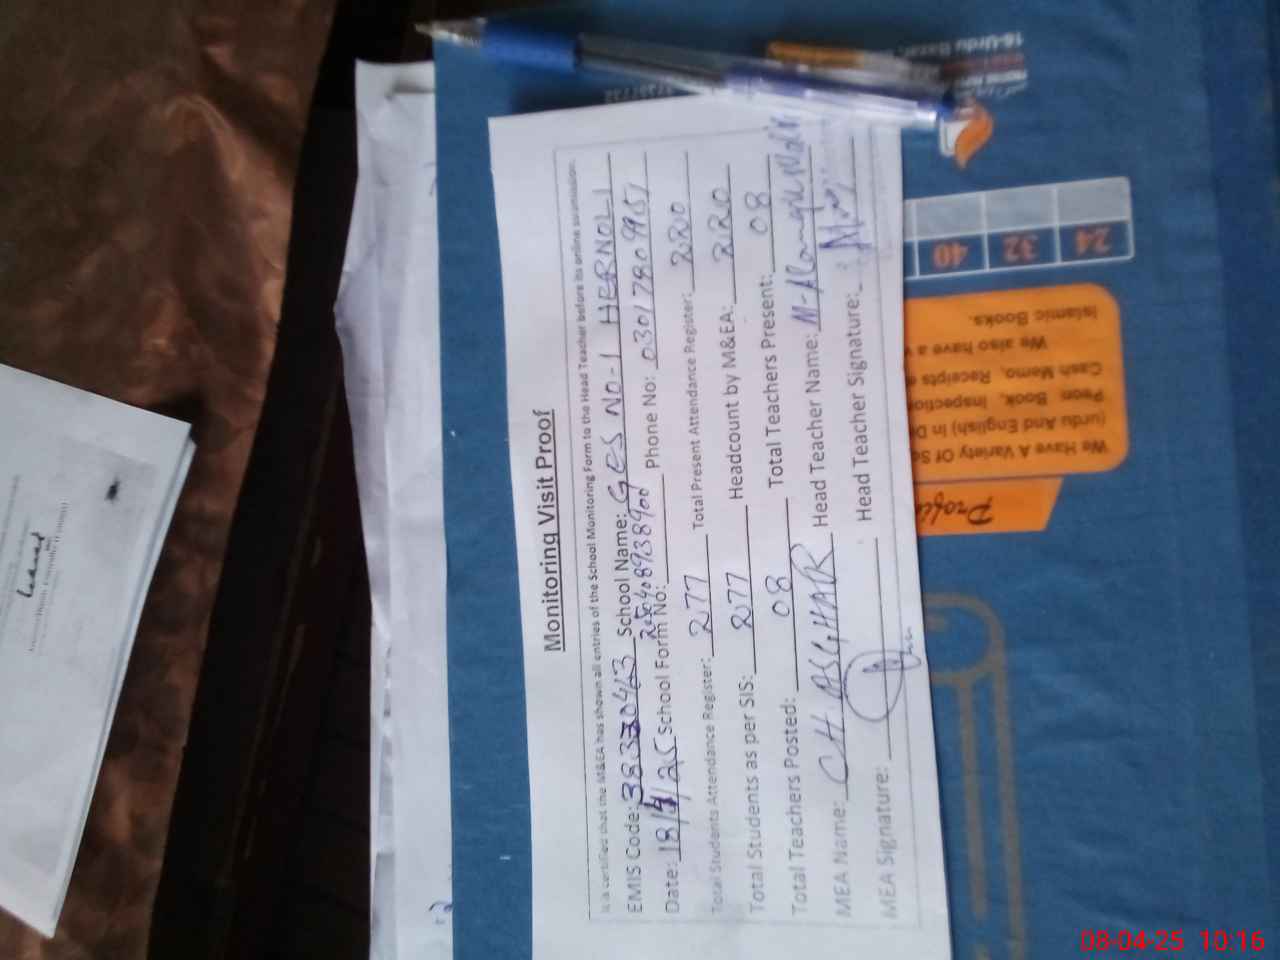 Monitoring Visit Proof
It is certified that the M&EA has shown all entries of the School Monitoring Form to the Head Teacher before its online submission.
EMIS Code: 38330463 School Name: GES NO-1 HERNOLI
Date: 18/4/25 School Form No: 25408938900 Phone No: 03017809957
Total Students Attendance Register: 277 Total Present Attendance Register: 220
Total Students as per SIS: 277 Headcount by M&EA: 220
Total Teachers Posted: 08 Total Teachers Present: 08
MEA Name: CH. ASGHAR Head Teacher Name:
MEA Signature: Head Teacher Signature:
16-Urdu Bazar,
24
32
40
Profile
We Have A Variety Of
(urdu And English) In
Peon Book, Inspection
Cash Memo, Receipts
We also have a
Islamic Books.
08-04-25 10:16